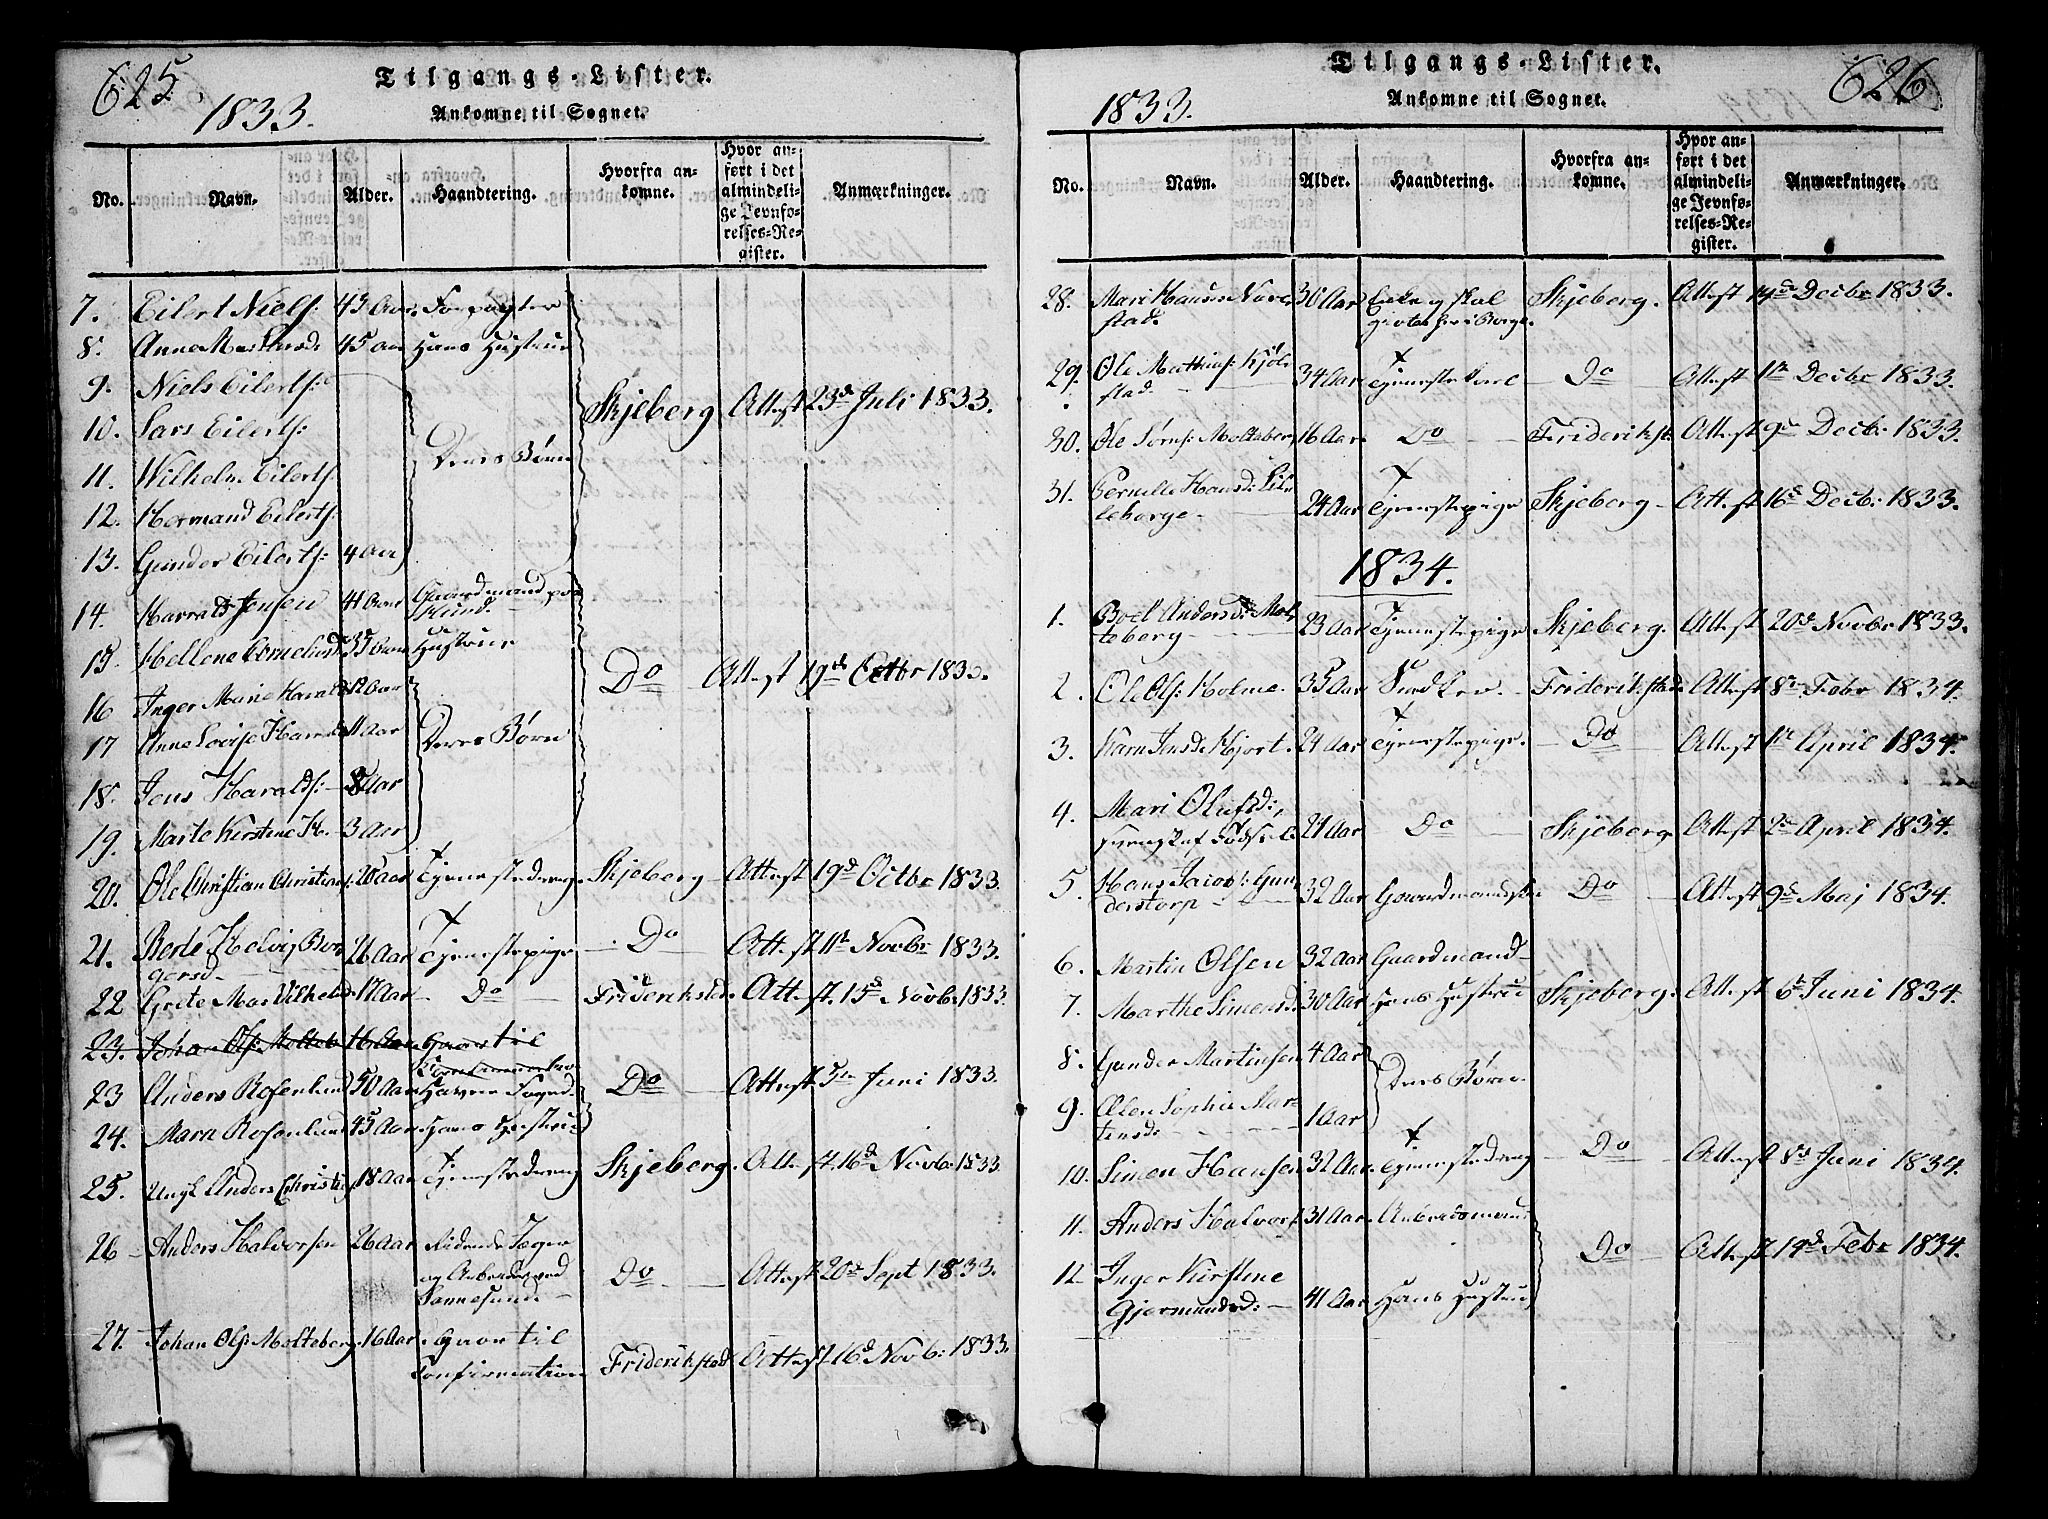 625.
Tilgangs-Lister.
1833.
Ankomne til Sognet.
No. Navn. Alder. Haandtering. Hvorfra ankomne. Hvor anført i det almindelige Jevnførelses-Register. Anmærkninger.
7. Eilert Niels: 43 Aar. Forpagter
8. Anne 45 aar Hans Hustrue
9. Niels Eilerts:
10. Lars Eilerts: Skjeberg Attest 23d Juli 1833.
11. Wilhelm Eilerts: Deres Børn
12. Hermand Eilerts:
13. Gunder Eilerts: 4 Aar
14. Harrald Jensen 41 Aar Gaardmand paa Hund.
15. Hellene Corneliusd 35 Aar Hustrue Do Attest 19d Octbr 1833.
16 Inger Marie Harrald 12 Aar
17 Anne Lovise Harrald 11 Aar Deres Børn
18. Jens Haralds: 8 Aar
19. Marte Kirstine H. 3 Aar
20. Ole Christian Christian: 20 aar Tjenestedreng Skjeberg Attest 19d Octbr 1833.
21. Helvig Borgersd 26 Aar Tjenestepige Do Attest 11t Novbr 1833.
22 Grete Mar Vilhelmsd. 17 Aar Do Frideriksta. Attest. 15d Novb. 1833.
23. Johan Ols: Molteb 16 Aar Gaar til Confirmation
23 Anders Rosenlund 50 Aar Havne Foged. Do Attest 5te Juni 1833.
24. Maren Rosenlund 45 Aar Hans Hustrue
25. Ungk Anders Christia 18 Aar Tjenestedreng Skjeberg. Attest 16d Novb. 1833.
26 Anders Halvorsen 26 Aar Ridende Jæger og Arbeider ved Sannesund Do Attest 20d Sept 1833.
27. Johan Ols: Molteberg. 16 Aar. Gaar til Confirmation Friderikstad Attest 16d Novb: 1833.
Tilgangs-Lister.
626
1833.
Ankomne til Sognet.
No. Navn. Alder. Haandtering. Hvorfra ankomne. Hvor anført i det almindelige Jevnførelses-Register. Anmærkninger.
28. Mari Hansen Navestad. 30 Aar Enke og skal giftes her i Borge. Skjeberg. Attest 14de Decbr 1833.
29. Ole Mathias: Kjølstad. 34 Aar Tjenestekarl Do Attest 1te Decbr 1833.
30. Ole Sørens: Molteberg 16 Aar Do Friderikst. Attest 9de Decb: 1833.
31. Pernille Hansd: Lilleborge 24 Aar Tjenestepige Skjeberg Attest 16d Decb: 1833.
1834.
1. Boel Andersd: Molteberg 23 Aar Tjenestepige Skjeberg. Attest 20d Novbr 1833.
2. Ole Ols: Holme. 35 Aar Snedker. Friderikstad Attest 8de Febr 1834.
3. Karn Jensd: Kjort. 21 Aar Tjenestepige. Do Attest 1te April 1834.
4. Mari Olufsd: svensk af Fødsel. 21 Aar Do Skjeberg Attest 2de April 1834.
5. Hans Jacob: Gunderstorp 32 Aar Gaardmands Do Attest 9de Maj 1834.
6. Martin Olsen 32 Aar Gaardmand
7. Marthe Simensd: 30 Aar Hans Hustrue Skjeberg. Attest 6te Juni 1834.
8. Gunder Martinsen 4 Aar Deres Børn
9. Elen Sophie Martinsd: 1 Aar
10. Simen Hansen 32 Aar Tjenestedreng Do Attest 8de Juni 1834.
11. Anders Halvors: 31 Aar. Arbeidsmand Do Attest 19d Febr 1834.
12 Inger Kirstine Gjermundsd: 41 Aar Hans Hustrue